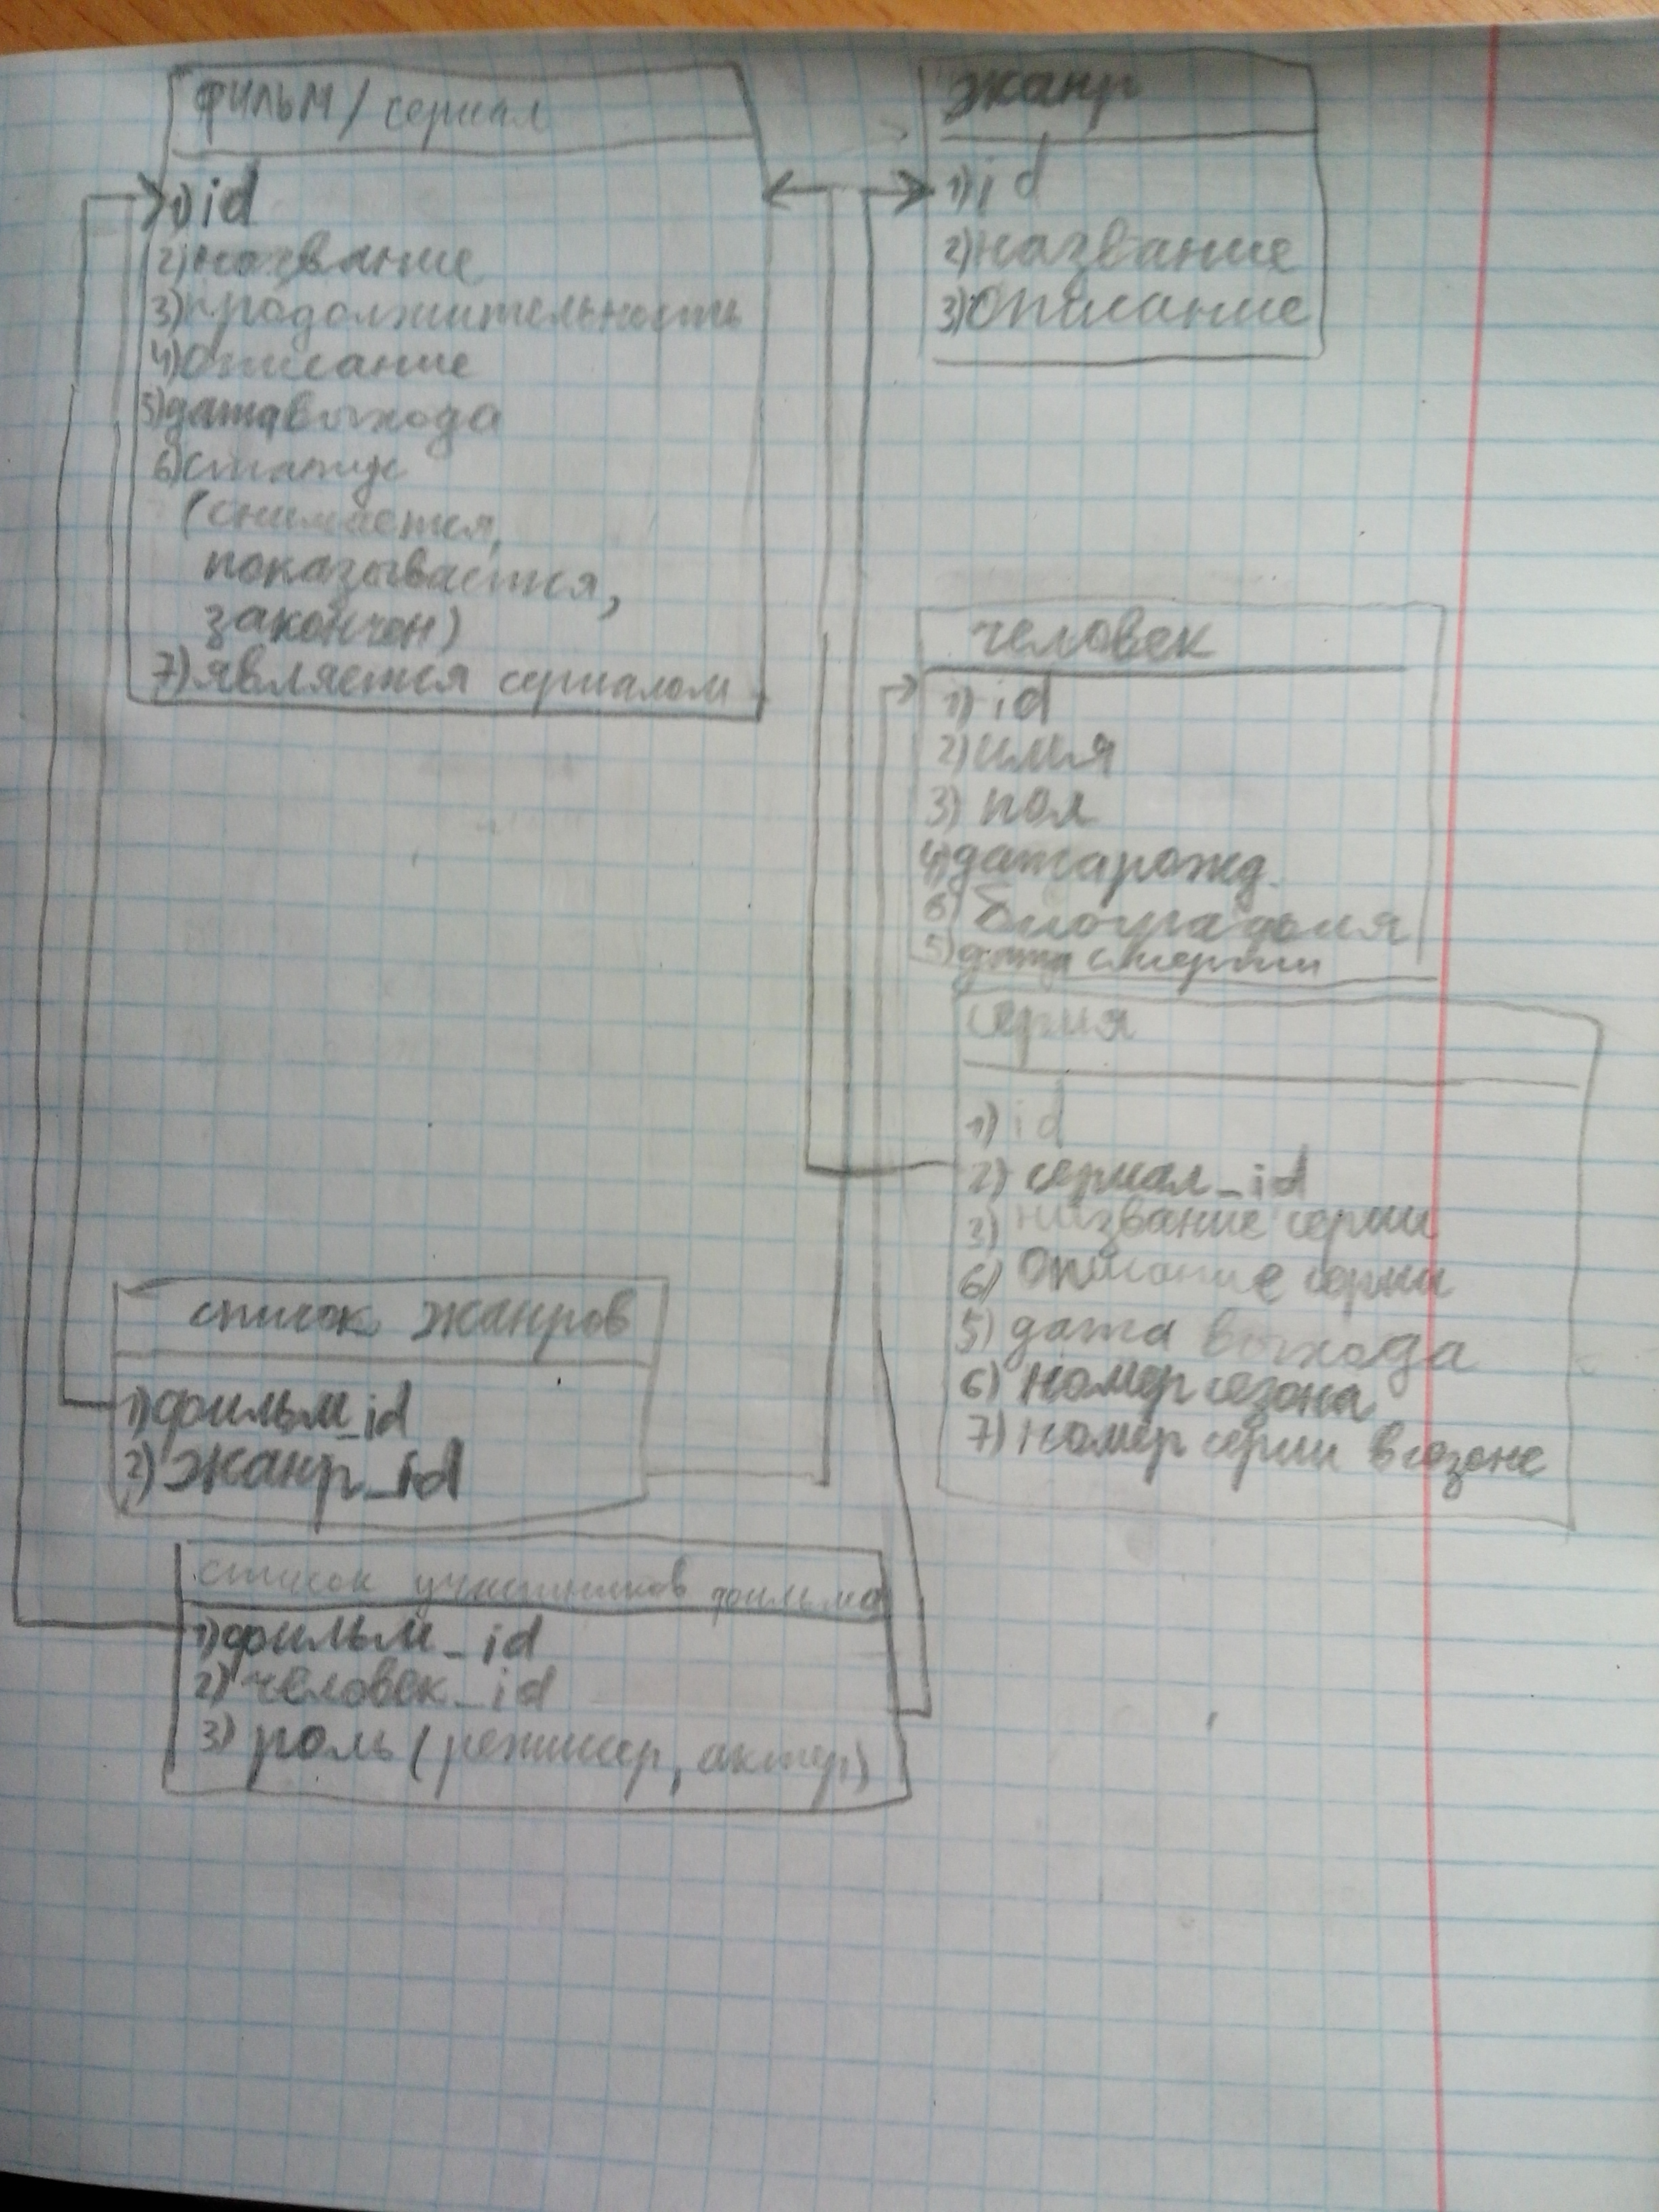 фильм/сериал
1) id
2) название
3) продолжительность
4) описание
5) дата выхода
6) статус
(снимается,
показывается,
закончен)
7) является сериалом
жанр
1) id
2) название
3) описание
человек
1) id
2) имя
3) пол
4) дата рожд.
6) биография
5) дата смерти
серия
1) id
2) сериал_id
3) название серии
6) описание серии
5) дата выхода
6) номер сезона
7) номер серии в сезоне
список жанров
1) фильм_id
2) жанр_id
список участников фильма
1) фильм_id
2) человек_id
3) роль (режиссер, актер)